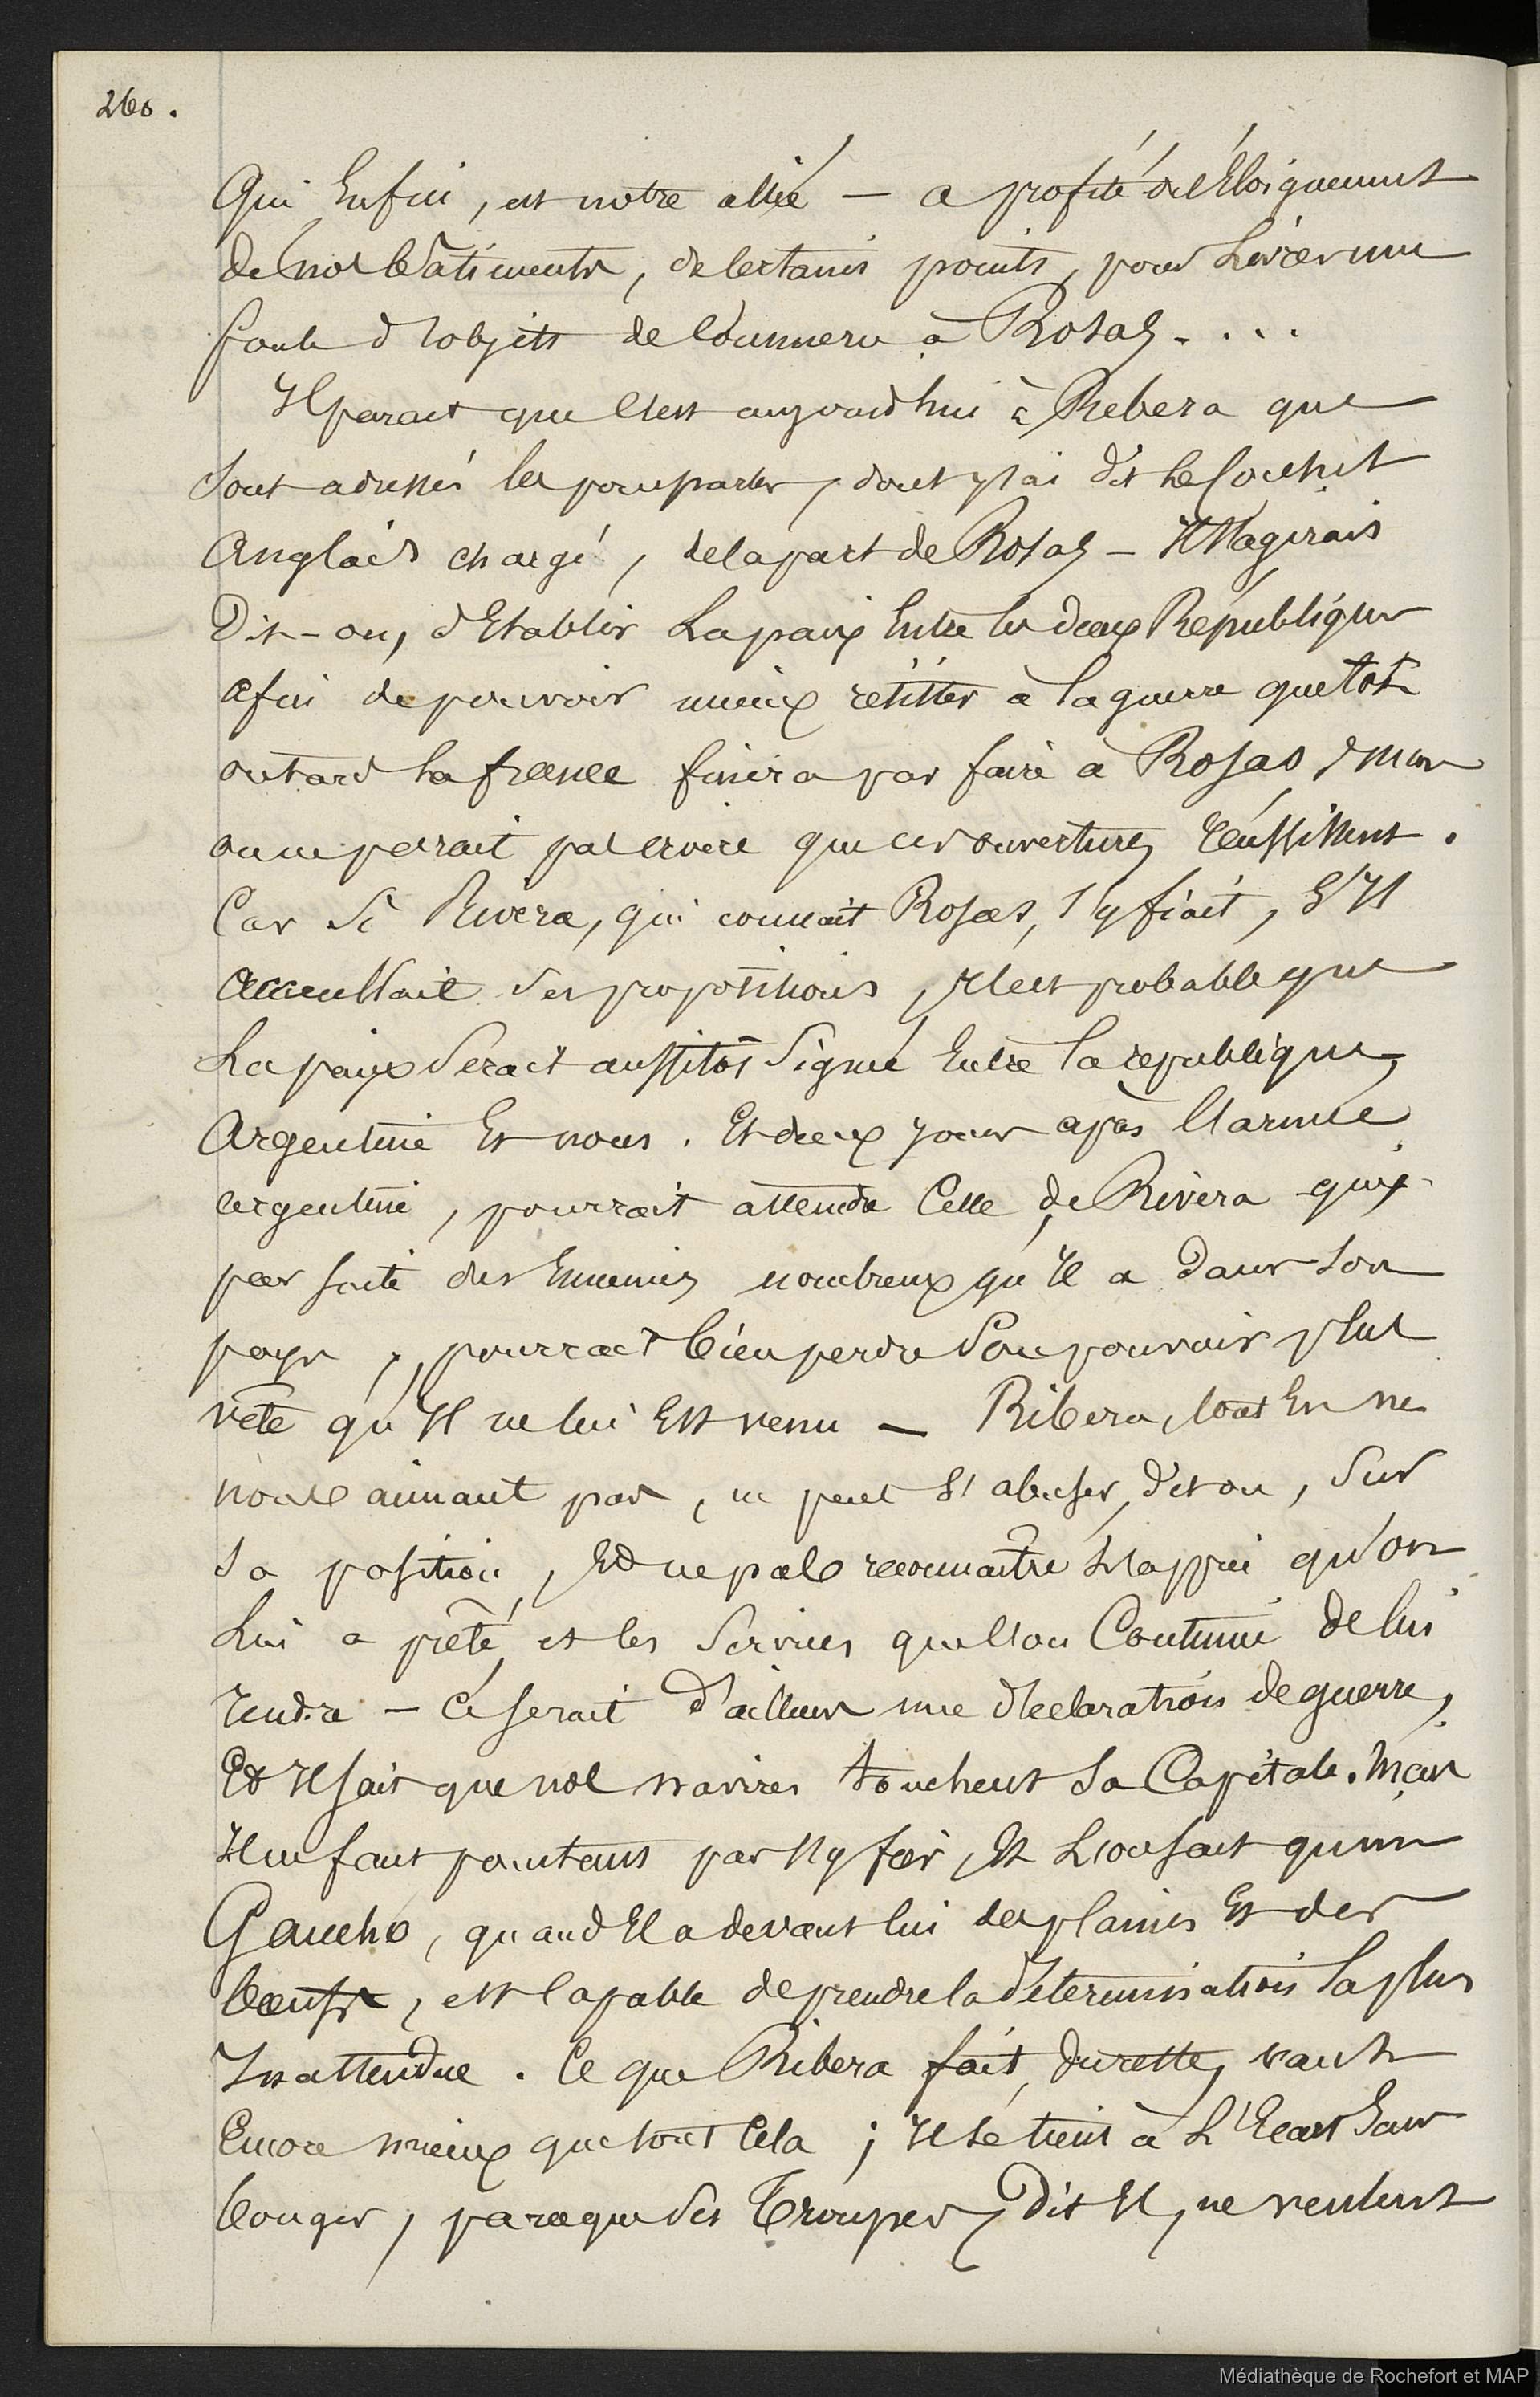 260.
Qui Enfin, est notre allié — a profité de l'Eloignement
de nos bâtiments, de certains points, pour Livrer une
foule d'objets de Commerce à Rosas. . . .
Il parait que c'est aujourd'hui à Rebera que
sont adressés les pourparlers, dont j'ai dit le Consul
Anglais chargé, de la part de Rosas — Il s'agirait
Dit-on, d'Etablir La paix Entre les deux Républiques
afin de pouvoir mieux résister à la guerre que tôt
ou tard la france finira par faire à Rosas, Mais
on ne perrait pas croire que ces ouvertures réussissent.
Car si Rivera, qui connait Rosas, s'y fiait, S'Il
accueillait ses propositions, Il est probable que
La paix serait aussitôt signée Entre la république
Argentine Et nous. Et deux jours après l'armée
argentine, pourrait attendre Celle de Rivera qui,
par suite des Ennemis nombreux qu'Il a dans son
pays, pourrait bien perdre son pouvoir plus
vite qu'Il ne lui Est venu — Ribera, tout En ne
nous aimant pas, ne peut s'abuser, dit on, Sur
sa position, Et ne pas reconnaître L'appui qu'on
Lui a prêté, et les services que l'on Continue de lui
rendre — Ce serait d'ailleurs une déclaration de guerre,
Et Il sait que nos navires touchent sa Capitale. Mais
Il ne faut pourtant pas s'y fier, Et L'on sait qu'un
Gaucho, quand Il a devant lui des plaines Et des
bœufs, est Capable de prendre la détermination la plus
Inattendue. Ce que Ribera fait, du reste, vaut
Encore mieux que tout Cela ; Il se tient à L'Ecart Sans
bouger, parceque ses Troupes, Dit Il, ne veulent
Médiathèque de Rochefort et MAP